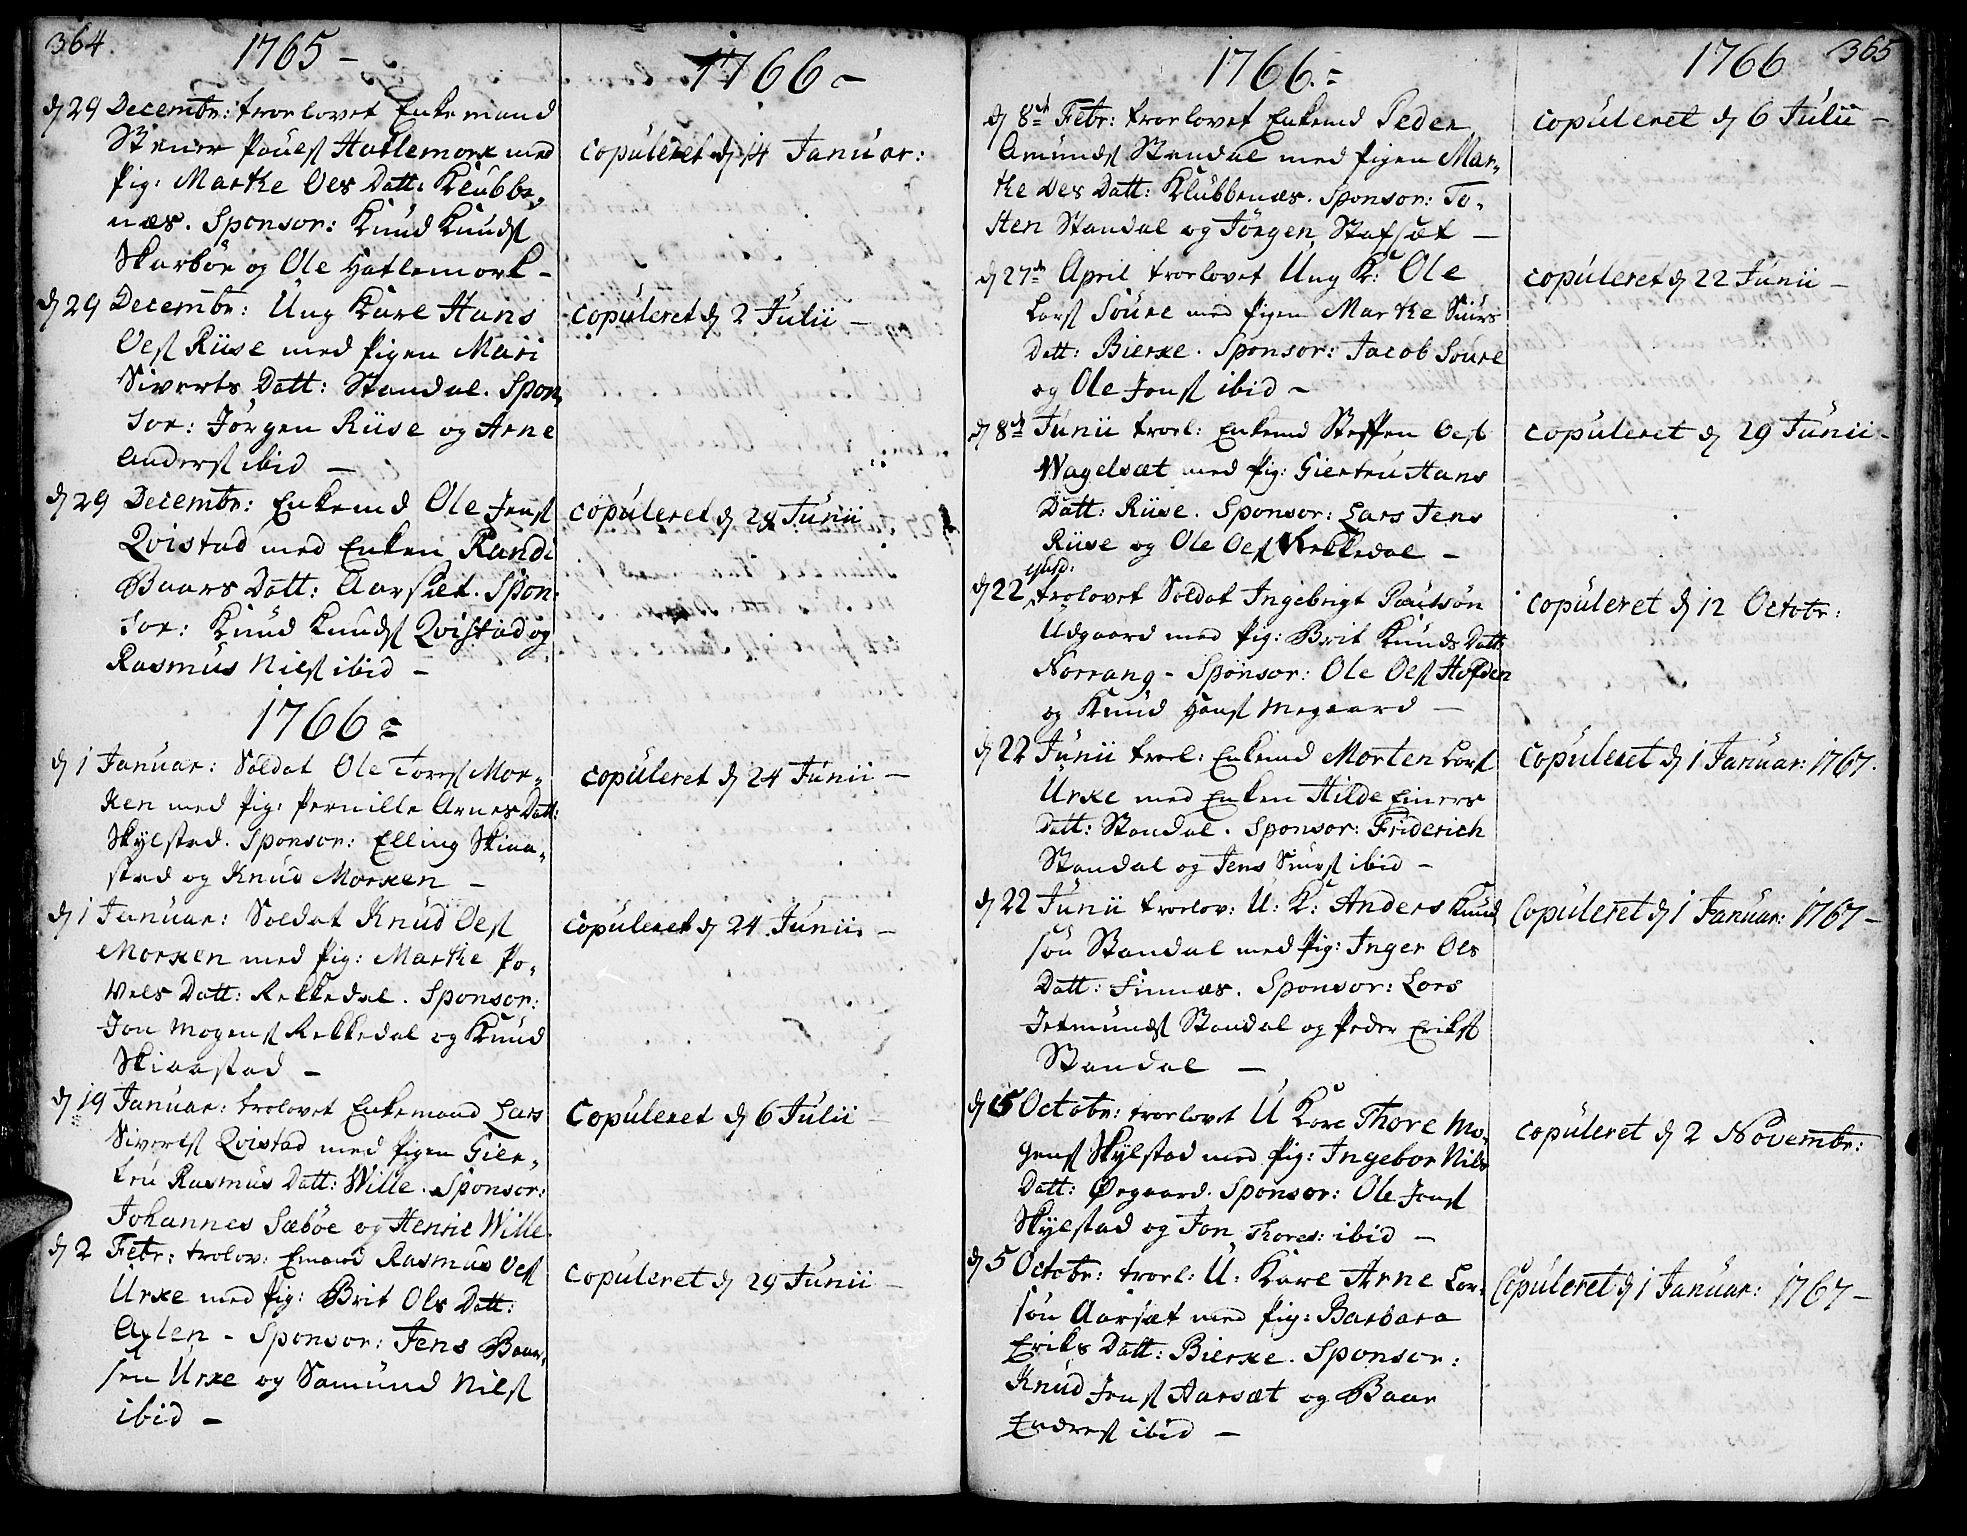 364
1765 -
d 29 Decembr: troelovet Enkemand
Steiner Pouels Hatlemork med
Pig: Marthe Oes Datt: Klubbe,
næs. Sponsor: Knud Knuds
Skarbøe og Ole Hatlemork -
d 29 Decembr: Ung Karl Hans
Oes Riise med Pigen Mari
Siverts Datt: Standal. Spon,
sor: Jørgen Riise og Arne
Anders ibid -
d 29 Decembr: Enkemd Ole Jens
Qvistad med Enken Randi
Baars Datt: Aarsæt. Spon:
sor: Knud Knuds Qvistad og
Rasmus Nils ibid -
1766 =
d 1 Januar: Soldat Ole Tores Mor,
ken med Pig: Pernille Arnes Datt:
Skylstad. Sponsor: Elling Skiaa,
stad og Knud Morken -
d 1 Januar: Soldat Knud Oes
Morken med Pig: Marthe Po,
vels Datt: Rekkedal. Sponsor:
Jon Mogens Rekkedal og Knud
Skiaastad -
d 19 Januar: trolovet Enkemand Lars
Siverts Qvistad med Pigen Gier,
tru Rasmus Datt: Wille. Sponsor:
Johannes Sæbøe og Henric Wille.
d 2 Febr: trolov: Emand Rasmus Oes
Urke med Pig: Brit Ols Datt:
Aylen - Sponsor: Jens Baar,
sen Urke og Samund Nils
ibid -
1766 -
copuleret d 14 Januar:
copuleret d 2 Julii -
copuleret d 29 Junii
copuleret d 24 Junii -
copuleret d 24 Junii -
copuleret d 6 Julii -
copuleret d 29 Junii -
1766 =
d 8de Febr: troelovet Enkemd Peder
Amunds Standal med Pigen Mar,
the Oes Datt: Klubbenæs. Sponsor: To,
sten Standal og Jørgen Stafsæt -
d 27de April troelovet Ung K: Ole
Lars Soure med Pigen Marthe Siurs
Datt: Bierke. Sponsor: Jacob Soure
og Ole Jons ibid -
d 8de Junii troel: Enkemd Steffen Oes
Wagelsæt med Pig: Giertru Hans
Datt: Riise. Sponsor: Lars Jens
Riise og Ole Oes Rekkedal -
d 22 ejusd: trolovet Soldat Ingebrigt Paulsøn
Udgaard med Pig: Brit Knuds Datt:
Norrang - Sponsor: Ole Oes Hofden
og Knud Hans Megaard -
d 22 Junii troel: Enkemd Morten Lars
Urke med Enken Hilde Einers
Datt: Standal. Sponsor: Friderich
Standal og Jens Siurs ibid -
d 22 Junii troelov: U: K: Anders Knud
søn Standal med Pig: Inger Ols
Datt: Finnæs. Sponsor: Lars
Jetmunds Standal og Peder Eriks
Standal -
d 5 Octobr: troelovet U Karl Thore Mo,
gens Skylstad med Pig: Ingebor Nils
Datt: Øvgaard. Sponsor: Ole Jons
Skylstad og Jon Thores: ibid -
d 5 Octobr: troel: U: Karl Arne Lar,
søn Aarsæt med Pig: Barbara
Eriks Datt: Bierke. Sponsor:
Knud Jens Aarsæt og Baar
Endres ibid -
1766
365
copuleret d 6 Julii -
copuleret d 22 Junii -
copuleret d 29 Junii -
copuleret d 12 Octobr:
copuleret d 1 Januar: 1767.
Copuleret d 1 Januar: 1767 -
copuleret d 2 Novembr:
Copuleret d 1 Januar: 1767 -